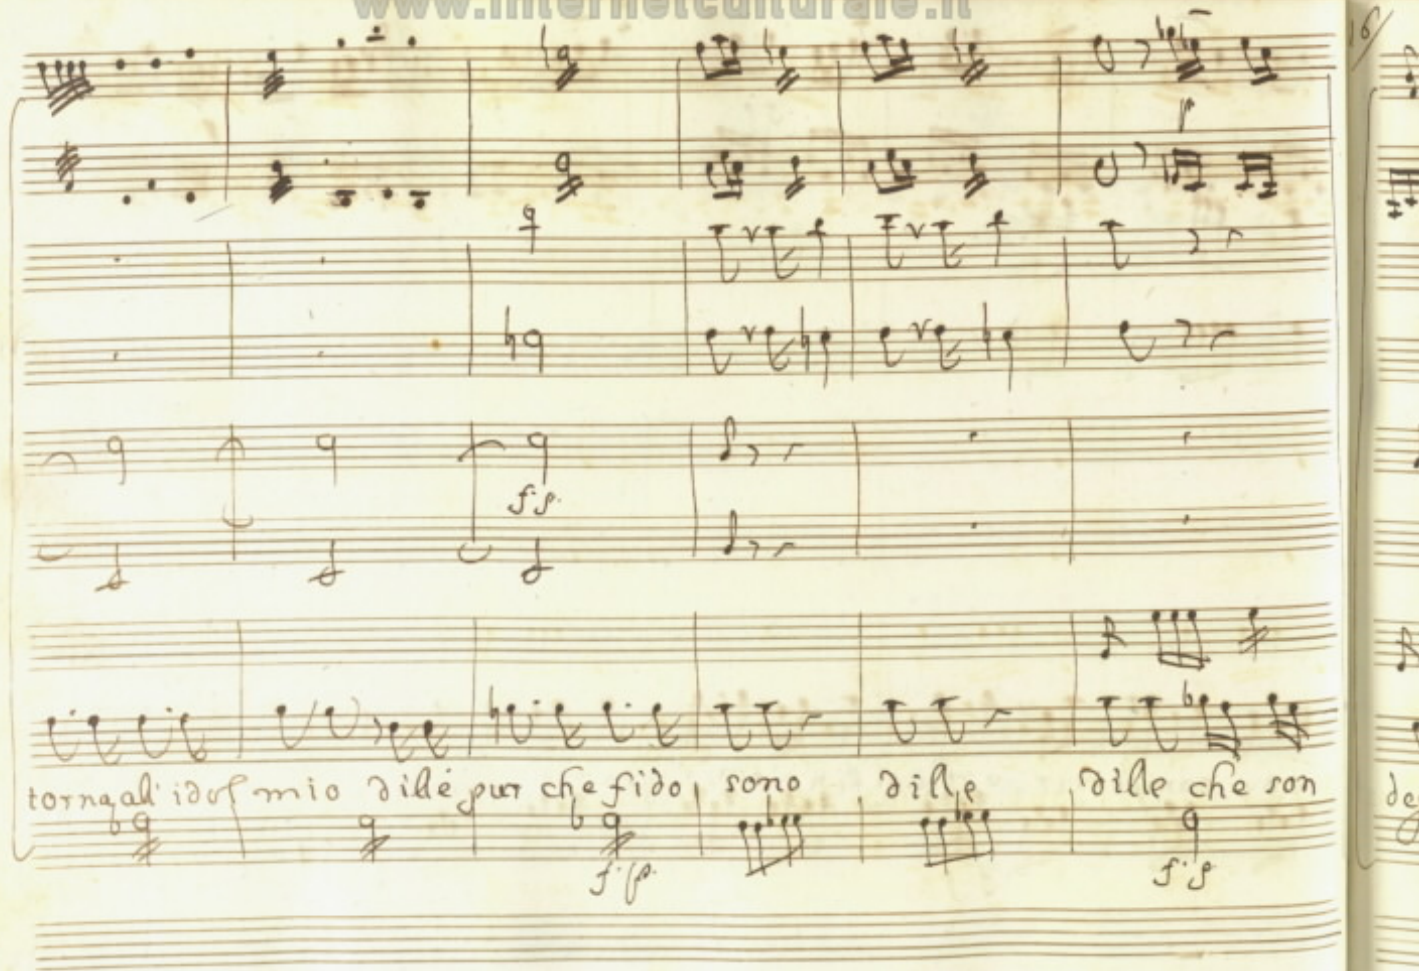 www.internetculturale.it
16
p
f. p.
torna all' idol mio dille pur che fido sono dille dille che son
f. p.
f. p
de